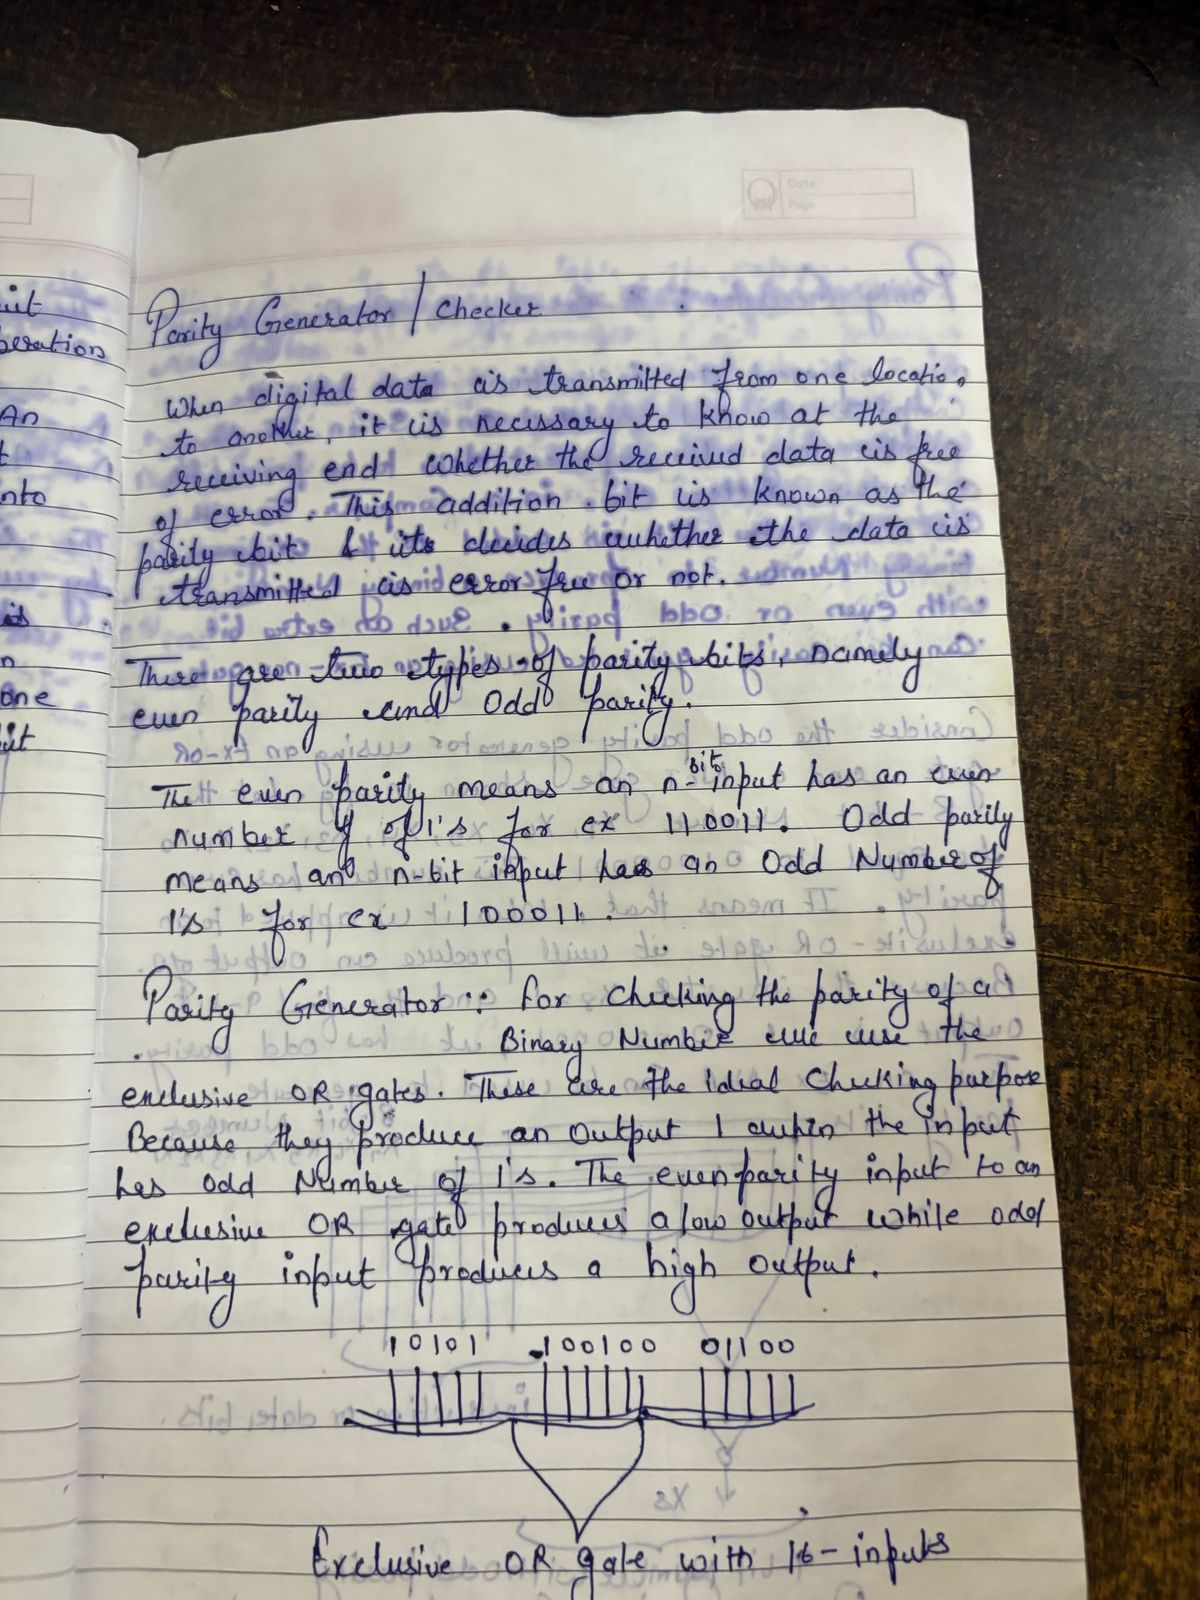 Date
Page
uit
beration
An
t
nto
is
n
one
uit
Parity Generator / Checker
When digital data is transmitted from one locatio
to another, it is necessary to know at the
receiving end whether the received data is free
of error. This addition bit is known as the
parity bit & its decides whether the data is
transmitted is error free or not.
There are two types of parity bits, namely
even parity and Odd parity.
The even parity means an n-bit input has an even
number of 1's for ex 110011. Odd parity
means an n-bit input has an Odd Number of
1's for ex 100011.
Parity Generator :: For checking the parity of a
Binary Number we use the
exclusive OR gates. These are the ideal Checking purpose
Because they produce an output 1 when the input
has odd Number of 1's. The even parity input to an
exclusive OR gate produces a low output while odd
parity input produces a high output.
10101 100100 01100
Exclusive OR gate with 16-inputs